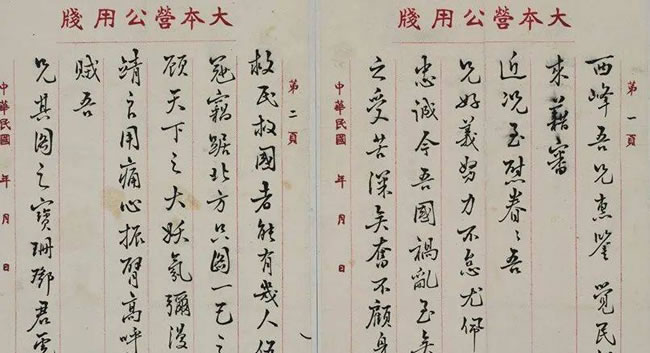 大本營公用牋
第一頁
西峰吾兄惠鑒覺民
來藉審
近况至慰眷〻吾
兄好義努力不怠尤佩
忠誠今吾國禍亂至矣
之受苦深矣奮不顧身
中華民國 年 月 日
大本營公用牋
第二頁
救民救國者能有幾人
冦竊踞北方只圖一己之
顧天下之大妖氛瀰漫
靖言用痛心振臂高呼
賊吾
兄其圖之寶珊鄧君
中華民國 年 月 日